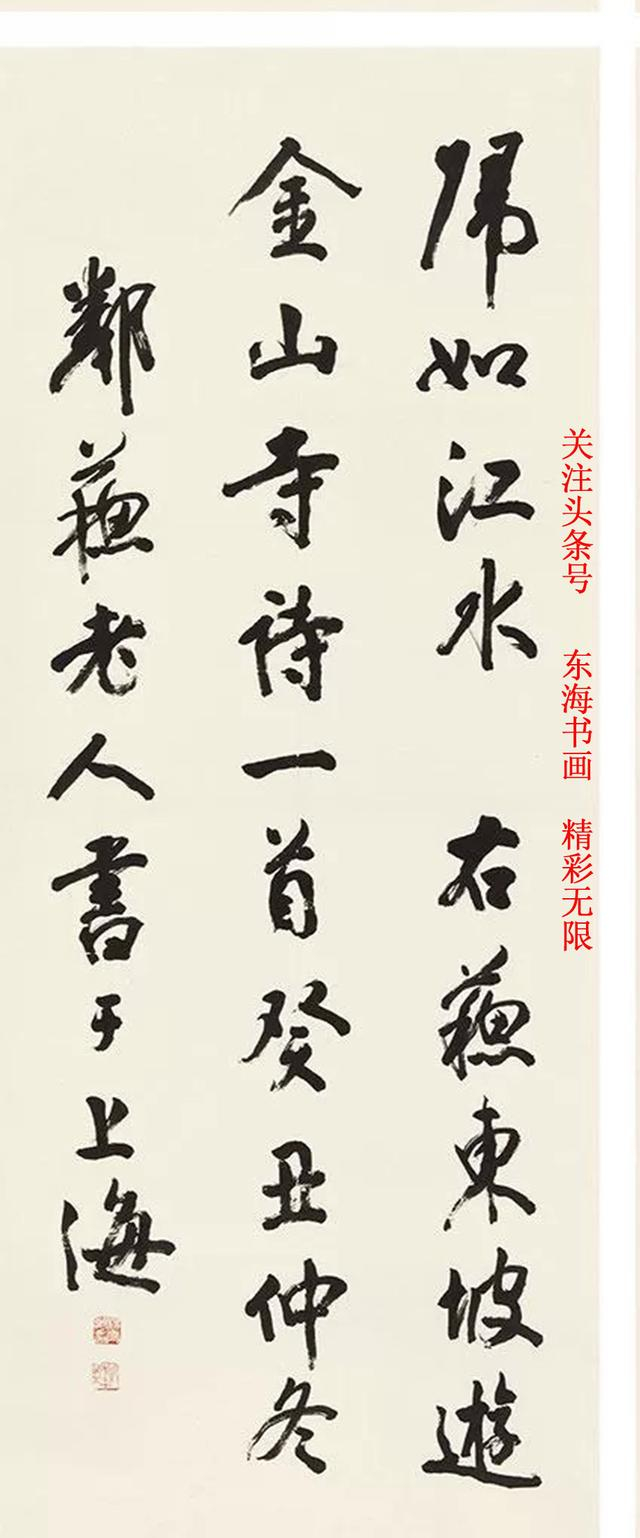 歸如江水 右蘇東坡遊
金山寺詩一首癸丑仲冬
鄰蘇老人書于上海
关注头条号 东海书画 精彩无限